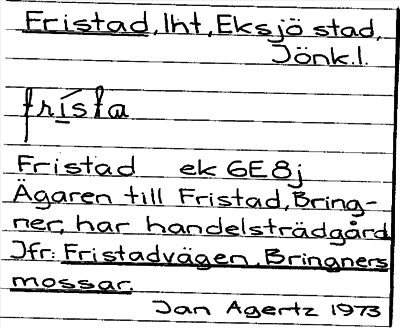 Fristad, lht, Eksjö stad,
Jönk.l.
frísta
Fristad ek 6E8j
Ägaren till Fristad, Bring-
ner, har handelsträdgård
Jfr: Fristadvägen, Bringners
mossar.
Jan Agertz 1973